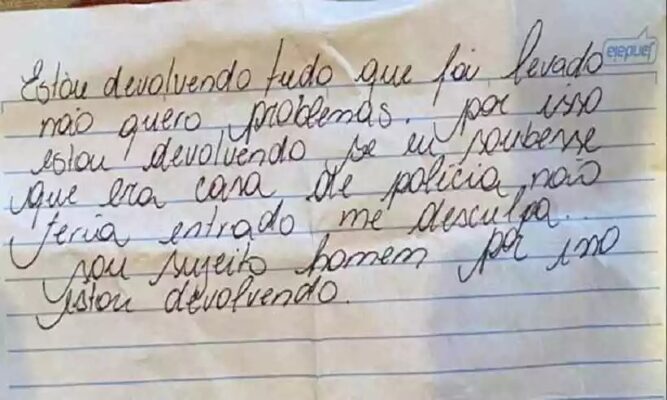 jandaia
Estou devolvendo tudo que foi levado
não quero problemas. por isso
estou devolvendo se eu soubesse
que era casa de polícia não
teria entrado me desculpa..
sou sujeito homem por isso
estou devolvendo.